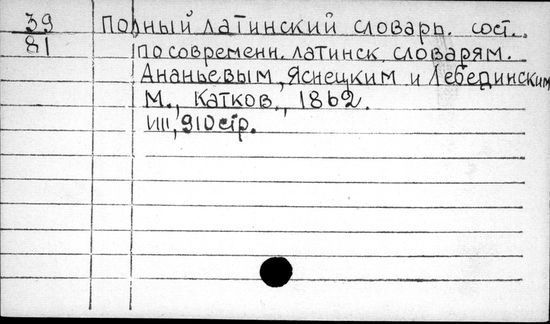 39 Полный латинский словарь. сост.
81 по современн. латинск. словарям.
Ананьевым, Яснецким и Лебединским
М., Катков, 1862.
VIII, 910 стр.